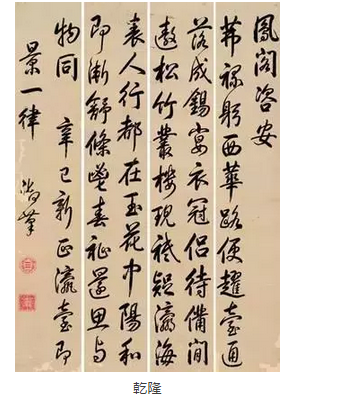 鳳閣咨安
茀祿躬西華路便趯臺通
落成錫宴衣冠侶待備閒
遨松竹叢樓現祇疑瀛海
表人行都在玉花中陽和
即漸舒條鬯春祉還思與
物同 辛巳新正瀛臺即
景一律 御筆
乾隆